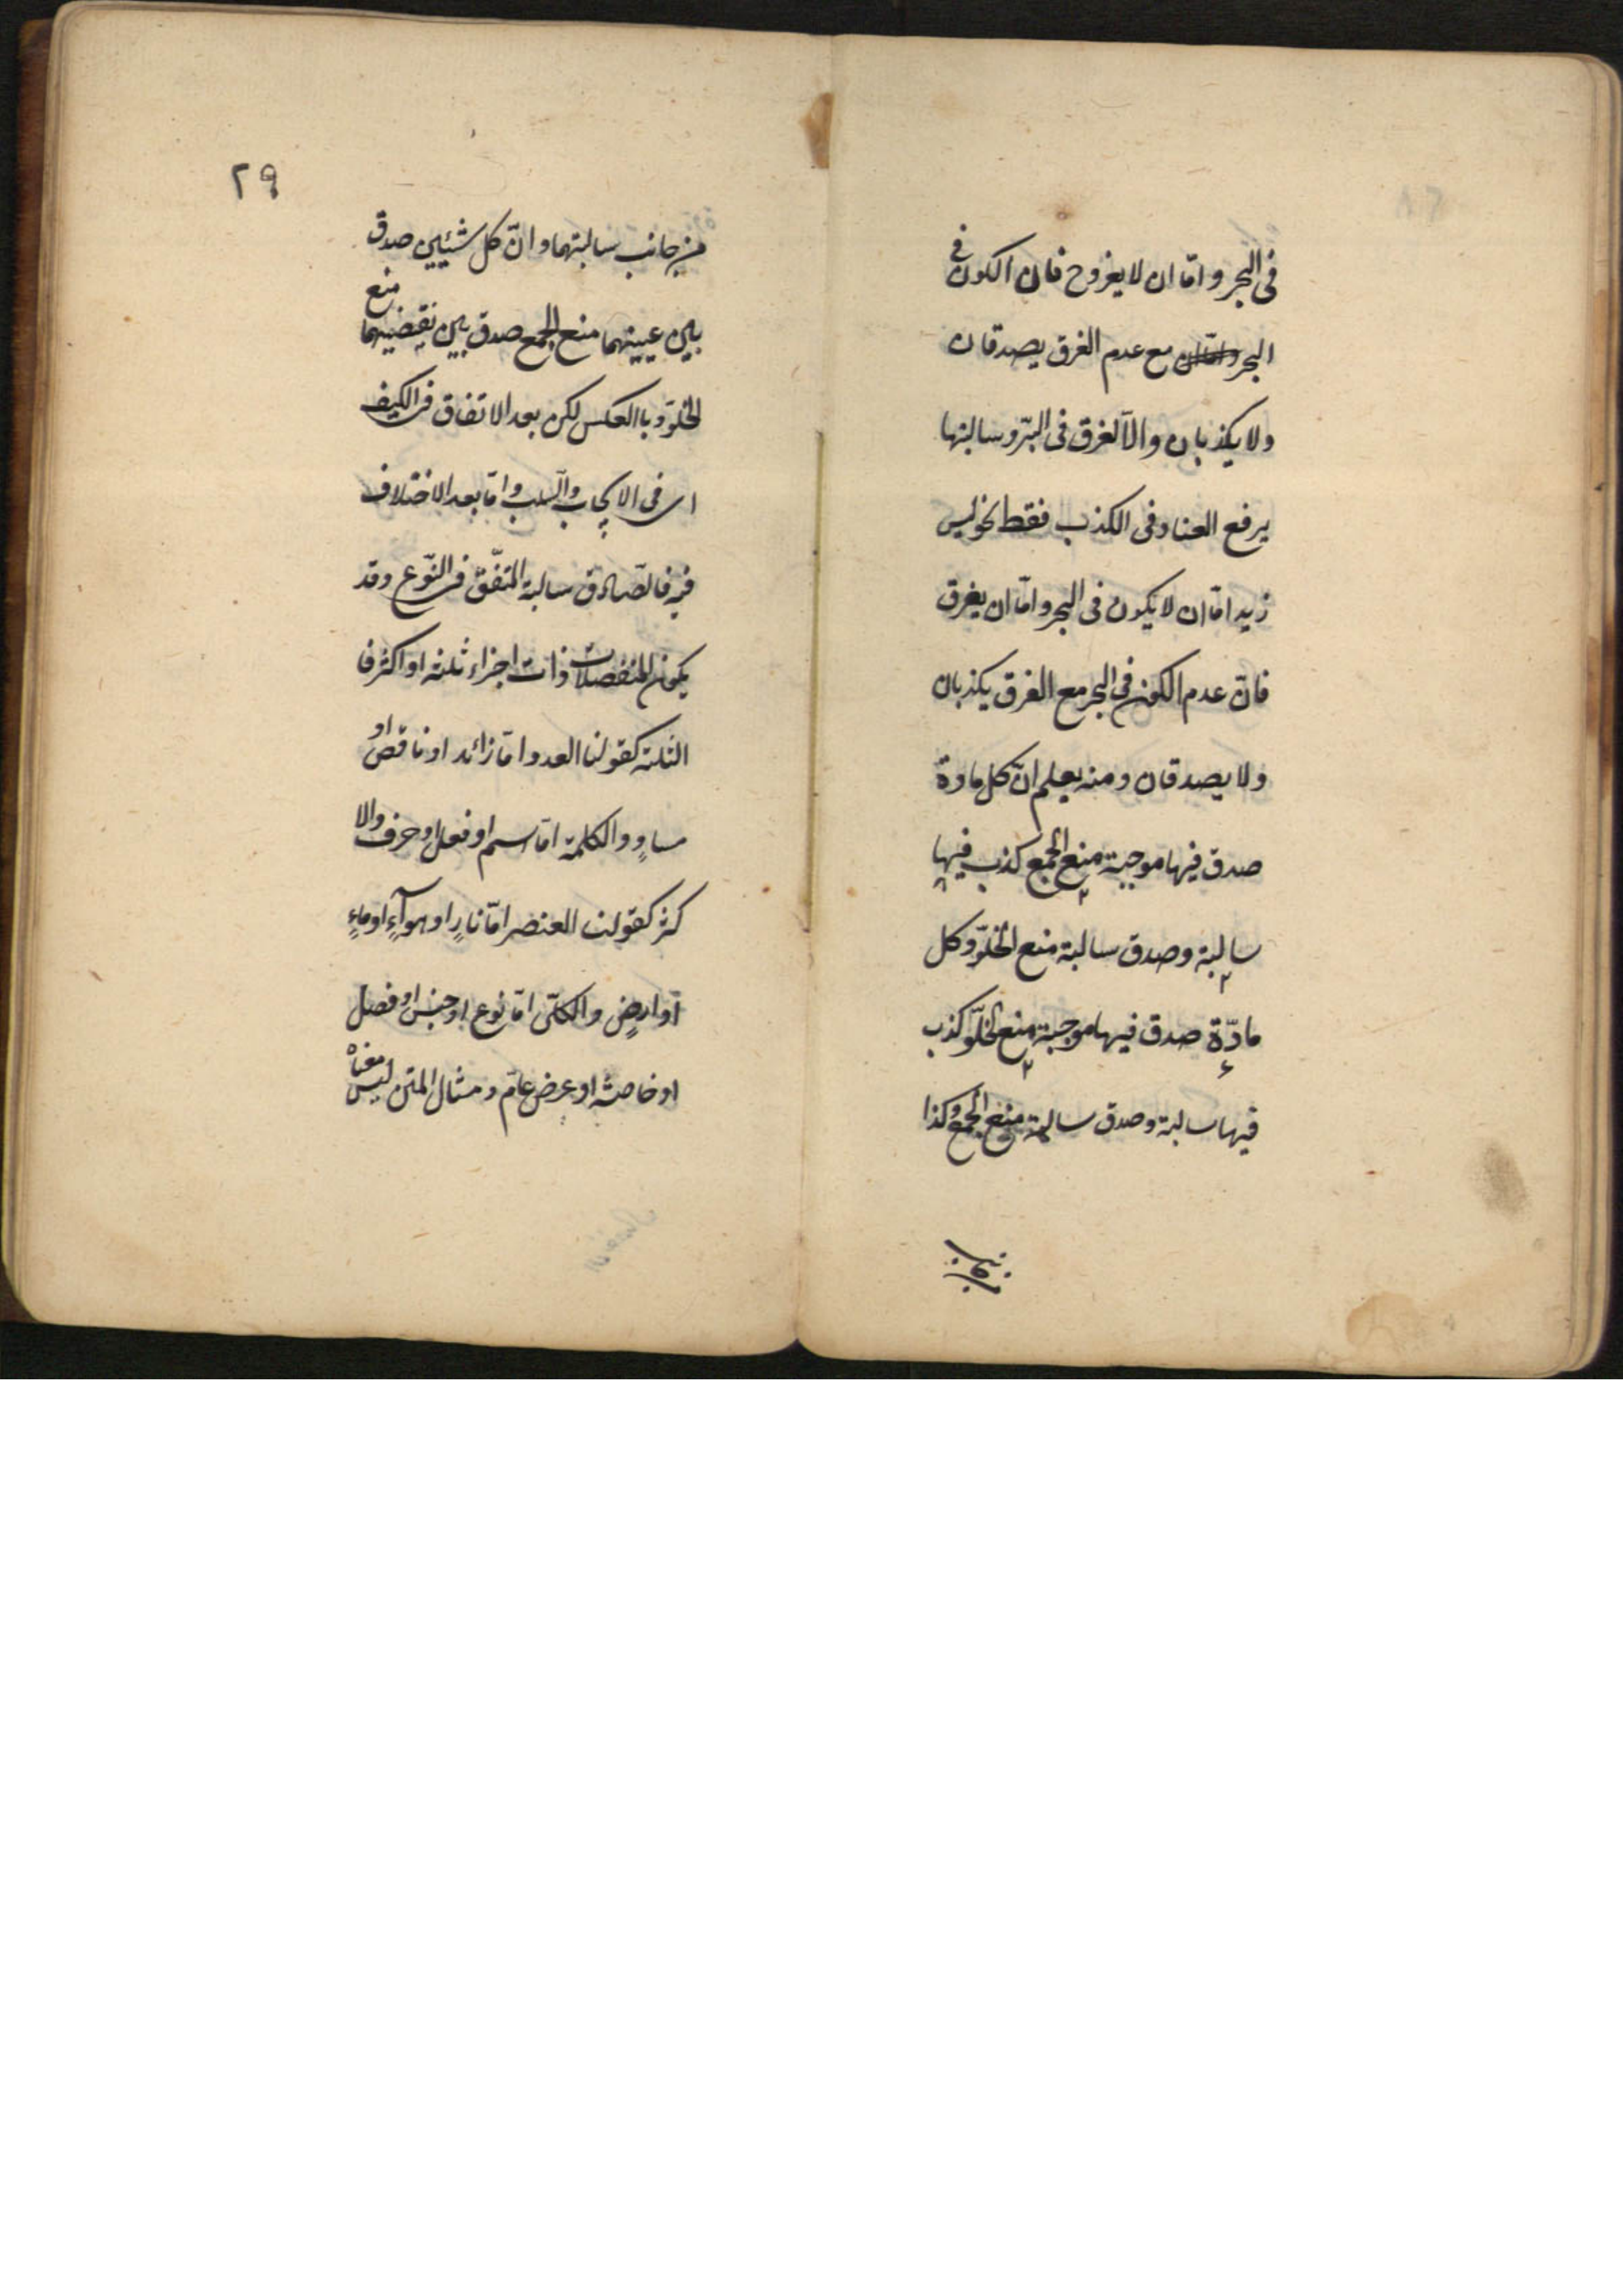 فى البحر وامّا ان لا يغروح فان الكون فى
البحر وامّا ان مع عدم الغرق يصدقان
ولا يكذبان والّا لغرق فى البرّ وسالبتها
يرفع العناد فى الكذب فقط نحو ليس
زيد امّا ان لا يكون فى البحر وامّا ان يغرق
فانّ عدم الكون فى البحر مع الغرق يكذبان
ولا يصدقان ومنه يعلم انّ كل مادة
صدق فيها موجبة منع الجمع كذب فيها
سالبة وصدق سالبة منع الخلوّ وكل
مادّة صدق فيها موجبة منع الخلوّ كذب
فيها سالبة وصدق سالبة منع الجمع وكذا
٢٩
من جانب سالبتهما وانّ كل شيئين صدق
بين عينيهما منع الجمع صدق بين نقيضيهما منع
الخلوّ وباالعكس لكن بعد الاتفاق فى الكيف
اى فى الايجاب والسلب وامّا بعد الاختلاف
فيه فالصّادق سالبة المتفّق فى النّوع وقد
يكون المنفصلات ذات اجزاء ثلثة او اكثر فا
الثلثة كقولنا العدد امّا زائد او ناقص او
مساوٍ والكلمة امّا اسم او فعل او حرف والا
كثر كقولنا العنصر امّا نارٍ او هوآءٍ او ماءٍ
او ارضٍ والكلّى امّا نوع او جنس او فصل
او خاصة او عرض عامّ ومثال المتن ليس معناه